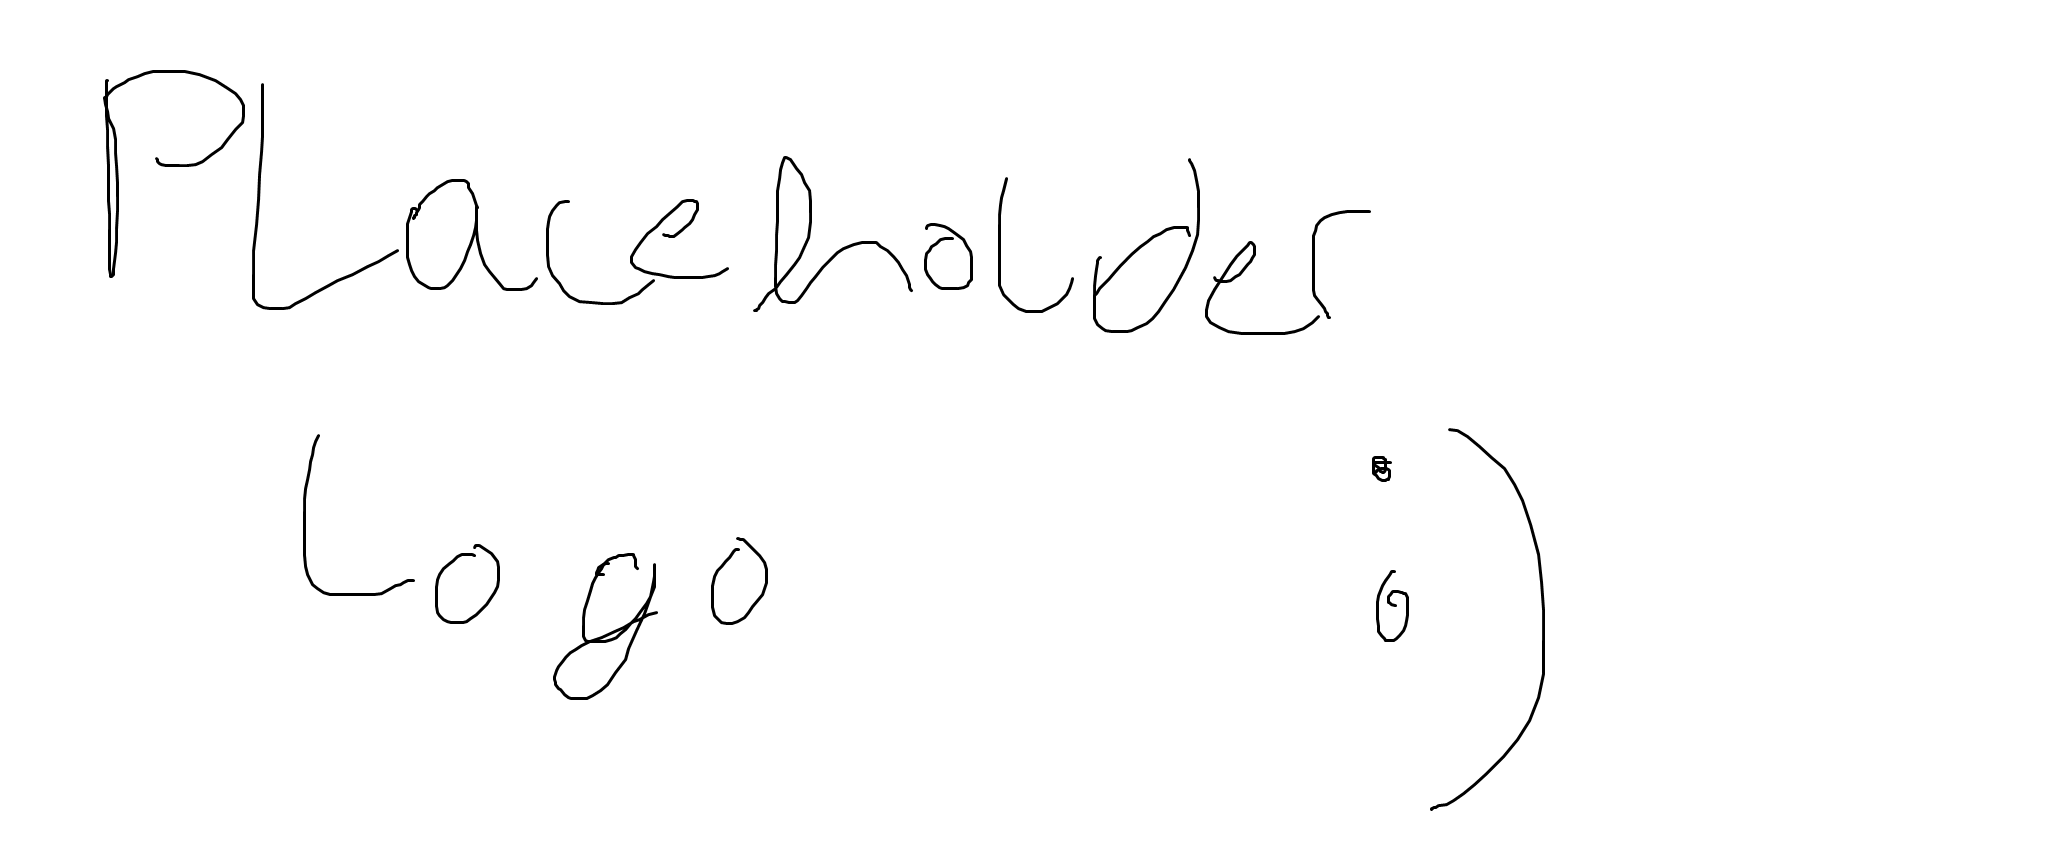 Placeholder
Logo :)